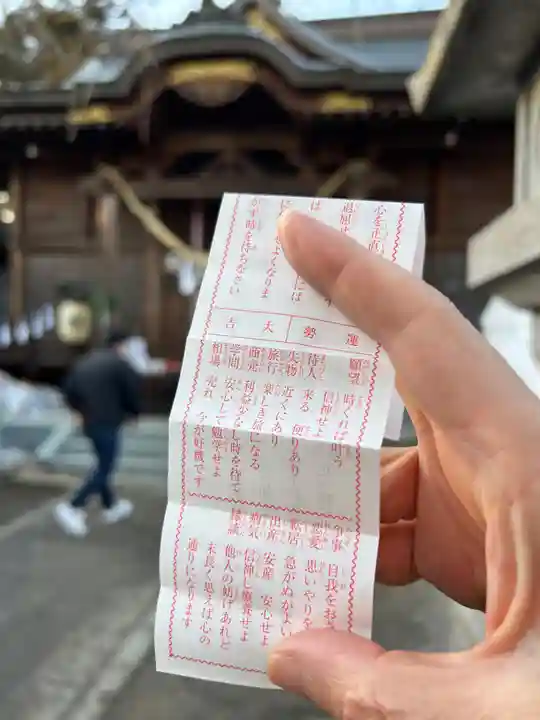 心を正直
退屈せ
は
には
せよくなりま
かず時を待ちなさい
運勢 大吉
願望 時くれば叶う
信神せよ
待人 来る 便りあり
失物 近くにあり
旅行 楽しき旅になる
商売 利益少なし時を待て
学問 安心して勉学せよ
相場 売れ 今が好機です
争事 自我をお
恋愛 思いやりを
転居 急がぬがよい
出産 安産 安心せよ
病気 信神し療養せよ
縁談 他人の妨げあれど
末長く思えば心の
通りになります